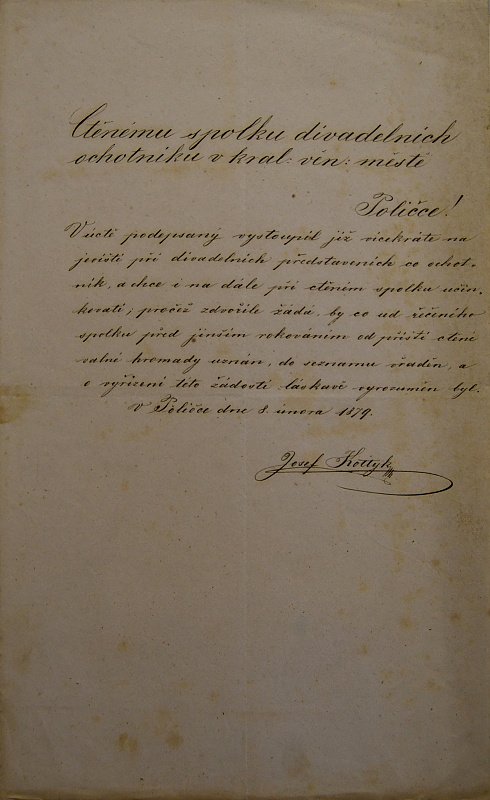 Ctěnému spolku divadelních
ochotníku v kral: věn: městě
Poličce!
V úctě podepsaný vystoupil již vícekráte na
jevišti při divadelních představeních co ochot-
ník, a chce i na dále při ctěném spolku účin-
kovati; pročež zdvořile žádá, by co ud řečeného
spolku před jinším rokováním od příští ctěné
valné hromady uznán, do seznamu vřaděn, a
o vyřízení této žádosti láskavě vyrozuměn byl.
V Poličce dne 8. února 1879.
Josef